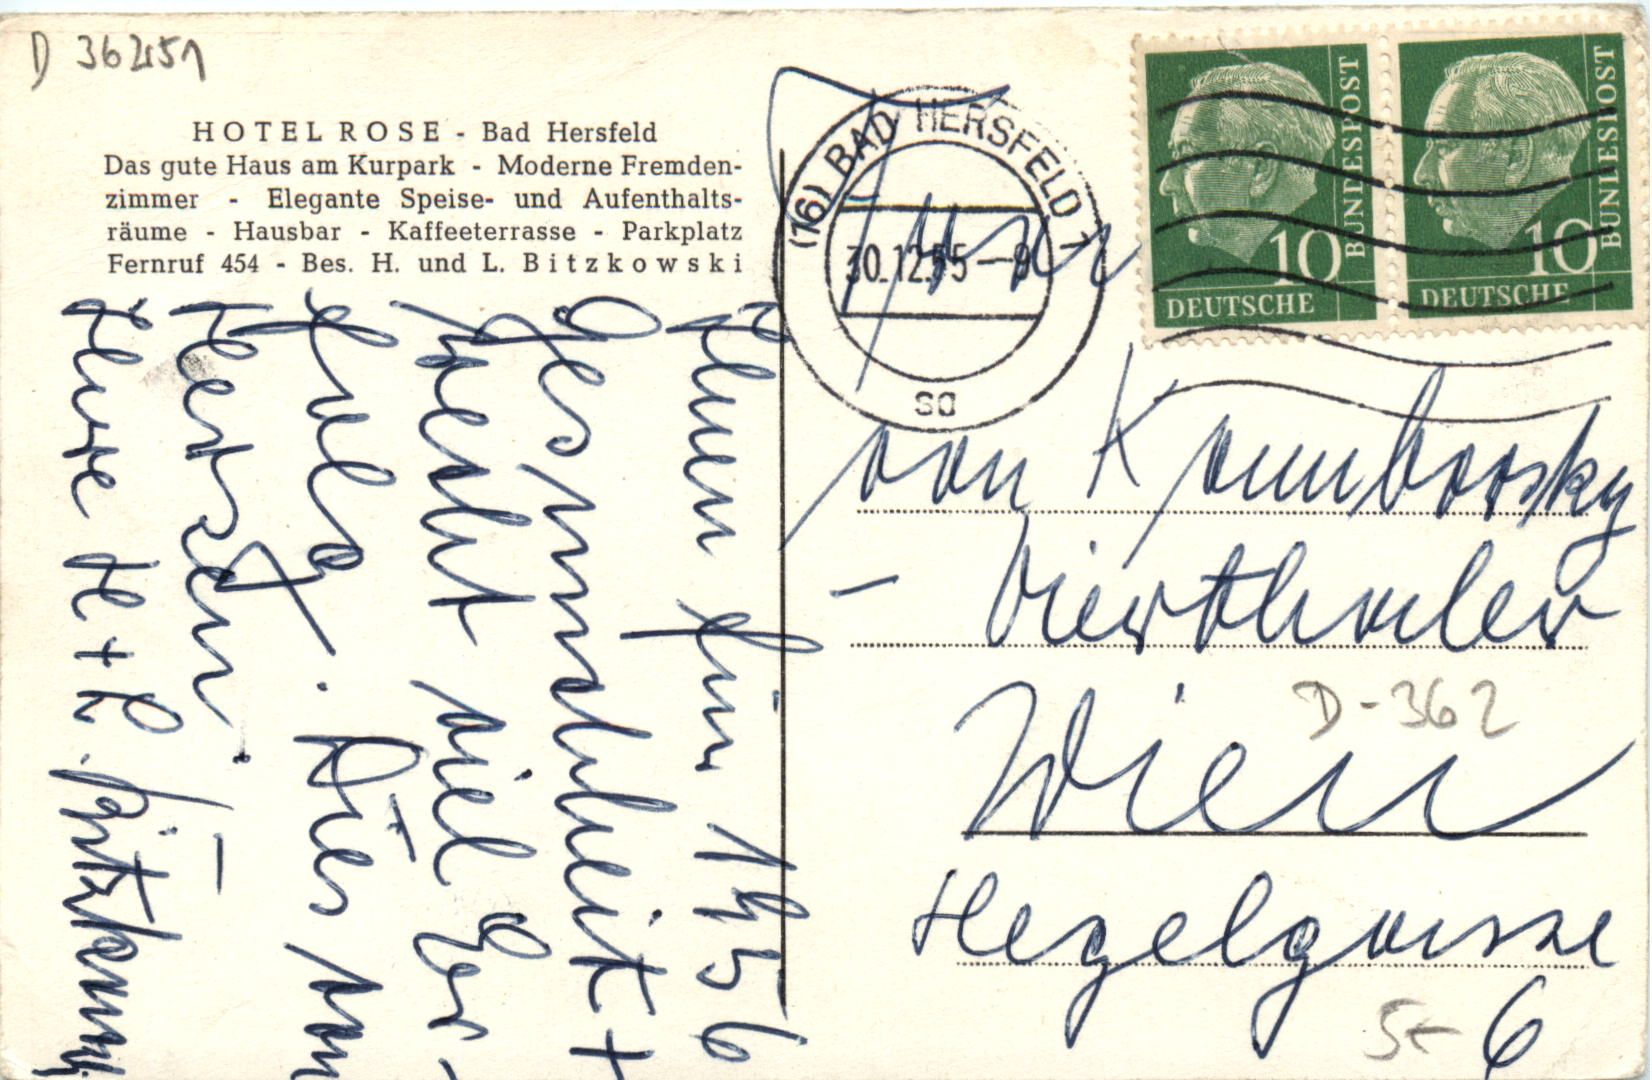 D 36251
HOTEL ROSE - Bad Hersfeld
Das gute Haus am Kurpark - Moderne Fremden-
zimmer - Elegante Speise- und Aufenthalts-
räume - Hausbar - Kaffeeterrasse - Parkplatz
Fernruf 454 - Bes. H. und L. Bitzkowski
Ihnen für 1956
Gesundheit +
Glück viel Er-
folg. Dies von
Herzen! —
Ihre H + L. Bitzkowski
(16) BAD HERSFELD 1
30.12.55 — 9
sa
DEUTSCHE
BUNDESPOST
10
DEUTSCHE
BUNDESPOST
10
von
- Vierthaler
D-362
Wien
Hegelgasse
6